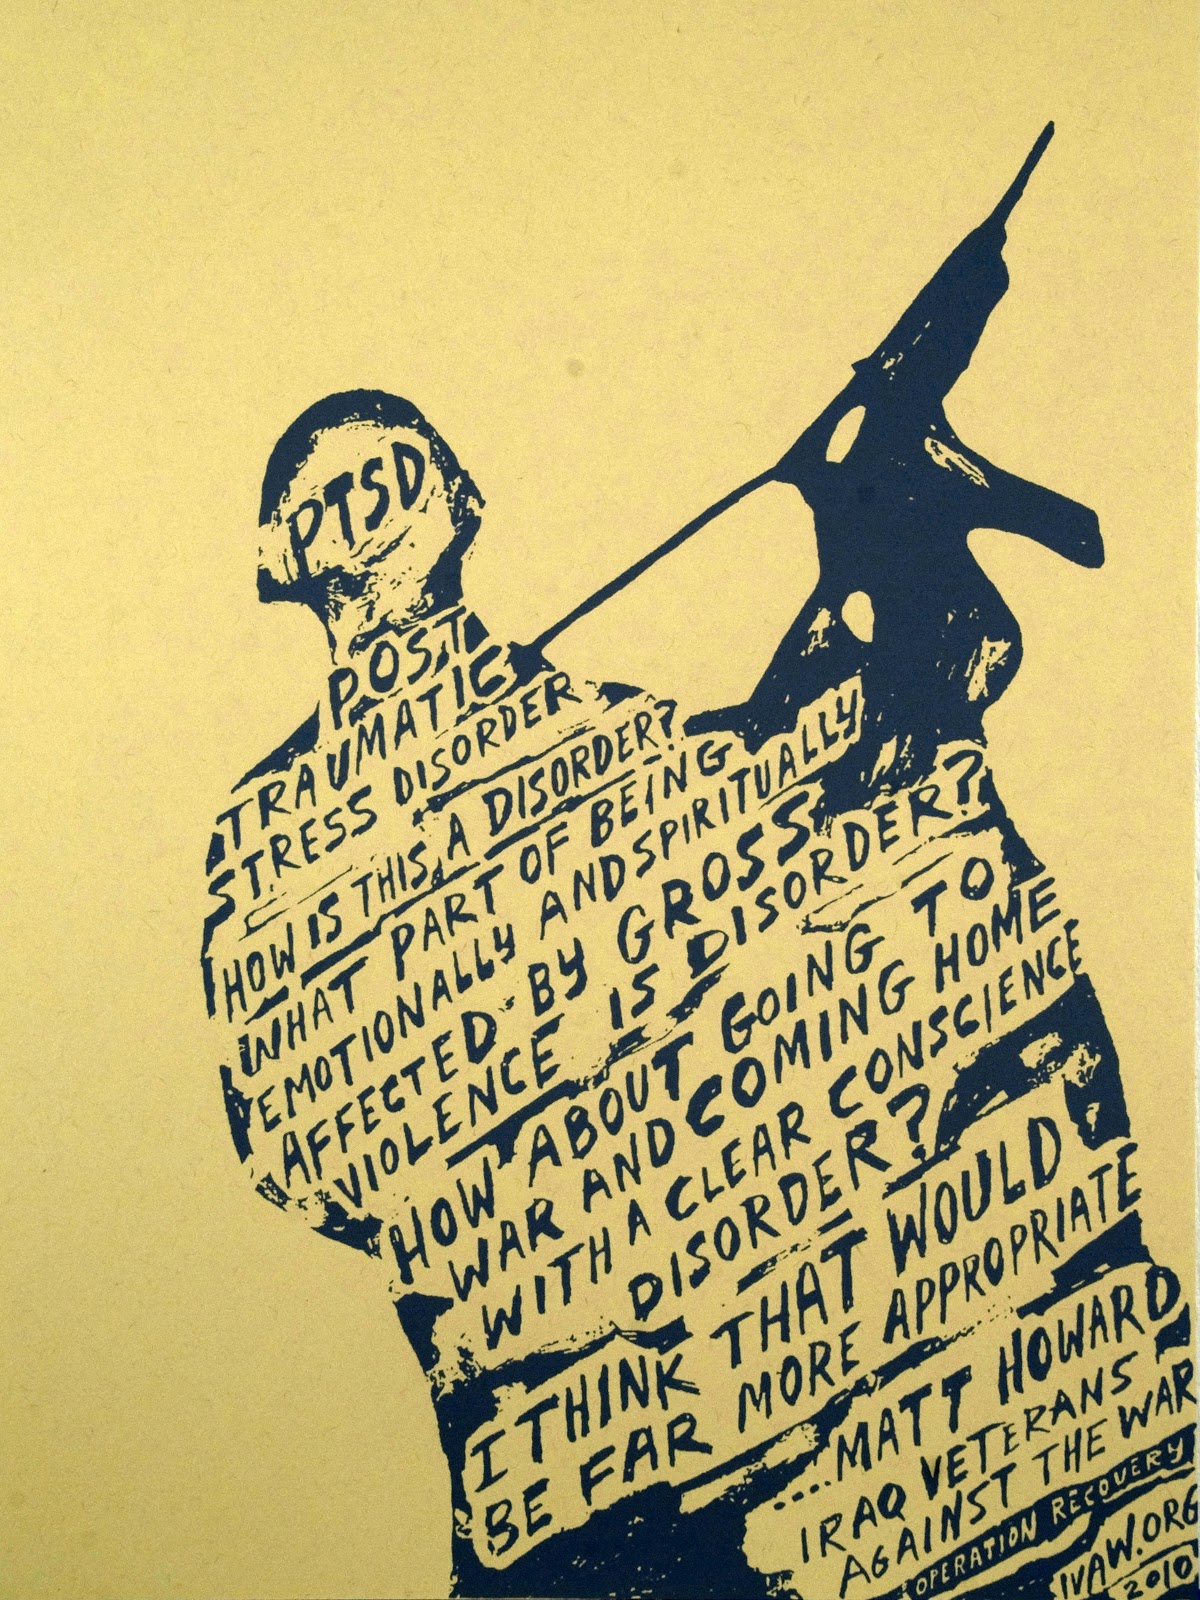 PTSD
POST
TRAUMATIC
STRESS DISORDER
HOW IS THIS A DISORDER?
WHAT PART OF BEING
EMOTIONALLY AND SPIRITUALLY
AFFECTED BY GROSS
VIOLENCE IS DISORDER?
HOW ABOUT GOING TO
WAR AND COMING HOME
WITH A CLEAR CONSCIENCE
DISORDER?
I THINK THAT WOULD
BE FAR MORE APPROPRIATE
....MATT HOWARD
IRAQ VETERANS
AGAINST THE WAR
OPERATION RECOVERY
IVAW.ORG
2010